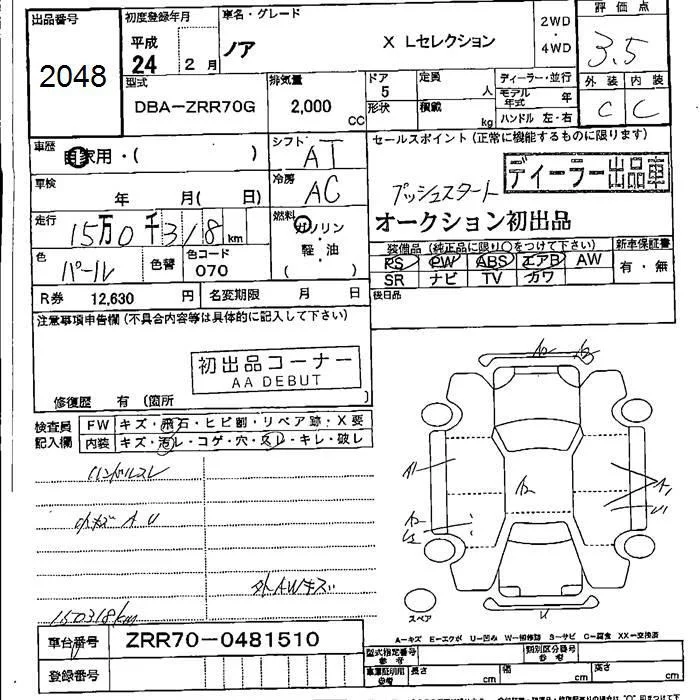 出品番号
2048
初度登録年月
平成
24 2 月
車名・グレード
ノア X Lセレクション
2WD
・
4WD
評価点
3.5
型式
DBA-ZRR70G
排気量
2,000 CC
ドア
5
定員
人
形状
積載
kg
ディーラー・並行
モデル年式 年
ハンドル 左・右
外装 内装
C C
車歴
自家用・( )
シフト
AT
セールスポイント(正常に機能するものに限ります)
ディーラー出品車
プッシュスタート
オークション初出品
車検
年 月( 日)
冷房
AC
走行
15万0千318 km
燃料
ガソリン
・
軽・油
( )
色
パール
色替
色コード
070
装備品(純正品に限り○をつけて下さい)
PS PW ABS エアB AW
SR ナビ TV カワ
新車保証書
有・無
R券 12,630 円
名変期限 月 日
後日品
注意事項申告欄(不具合内容等は具体的に記入して下さい)
初出品コーナー
AA DEBUT
修復歴 有 (箇所 )
検査員
記入欄
FW キズ・飛石・ヒビ割・リペア跡・X要
内装 キズ・汚レ・コゲ・穴・スレ・キレ・破レ
ハンドルスレ
内キズ A U
外AWキズ
150318km
A2
A1
A2
A1
U1
A2
U
スペア
A-キズ E-エクボ U-凹み W-補修跡 S-サビ C-腐食 XX-交換済
車台番号
ZRR70-0481510
型式指定番号
参考
類別区分番号
参考
登録番号
車庫証明用
参考
長さ cm
幅 cm
高さ cm